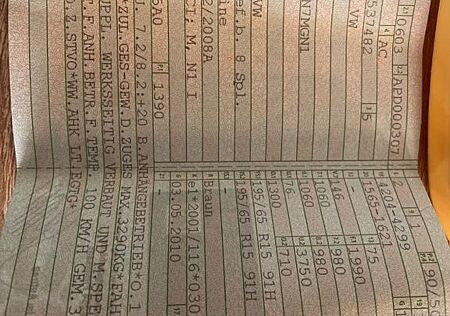 0603 APD000307
4 AC
537482 5
VW
N7MGN1
VW
ef.b. 8 Spl.
ine
2/2008A
CI; M, N1 I
5A0 1390
2 1 90/50
4204-4299
1965-1621
- 75
1990
1060 980
1060 980
76 3750
1300 710
195/65 R15 91H
195/65 R15 91H
Braun
e1*2001/116*030
03.05.2010
. 7.2/8.2:+20 B.ANHANGEBETRIEB*O.1
ZUL.GES-GEW.D.ZUGES MAX.3290KG*FAH
PPL. WERKSSEITIG VERBAUT UND M.SPE
T.F.ANH.BETR.F.TEMP. 100 KM/H GEM.3
O.Z.STVO*WW.AHK LT.EGTG*